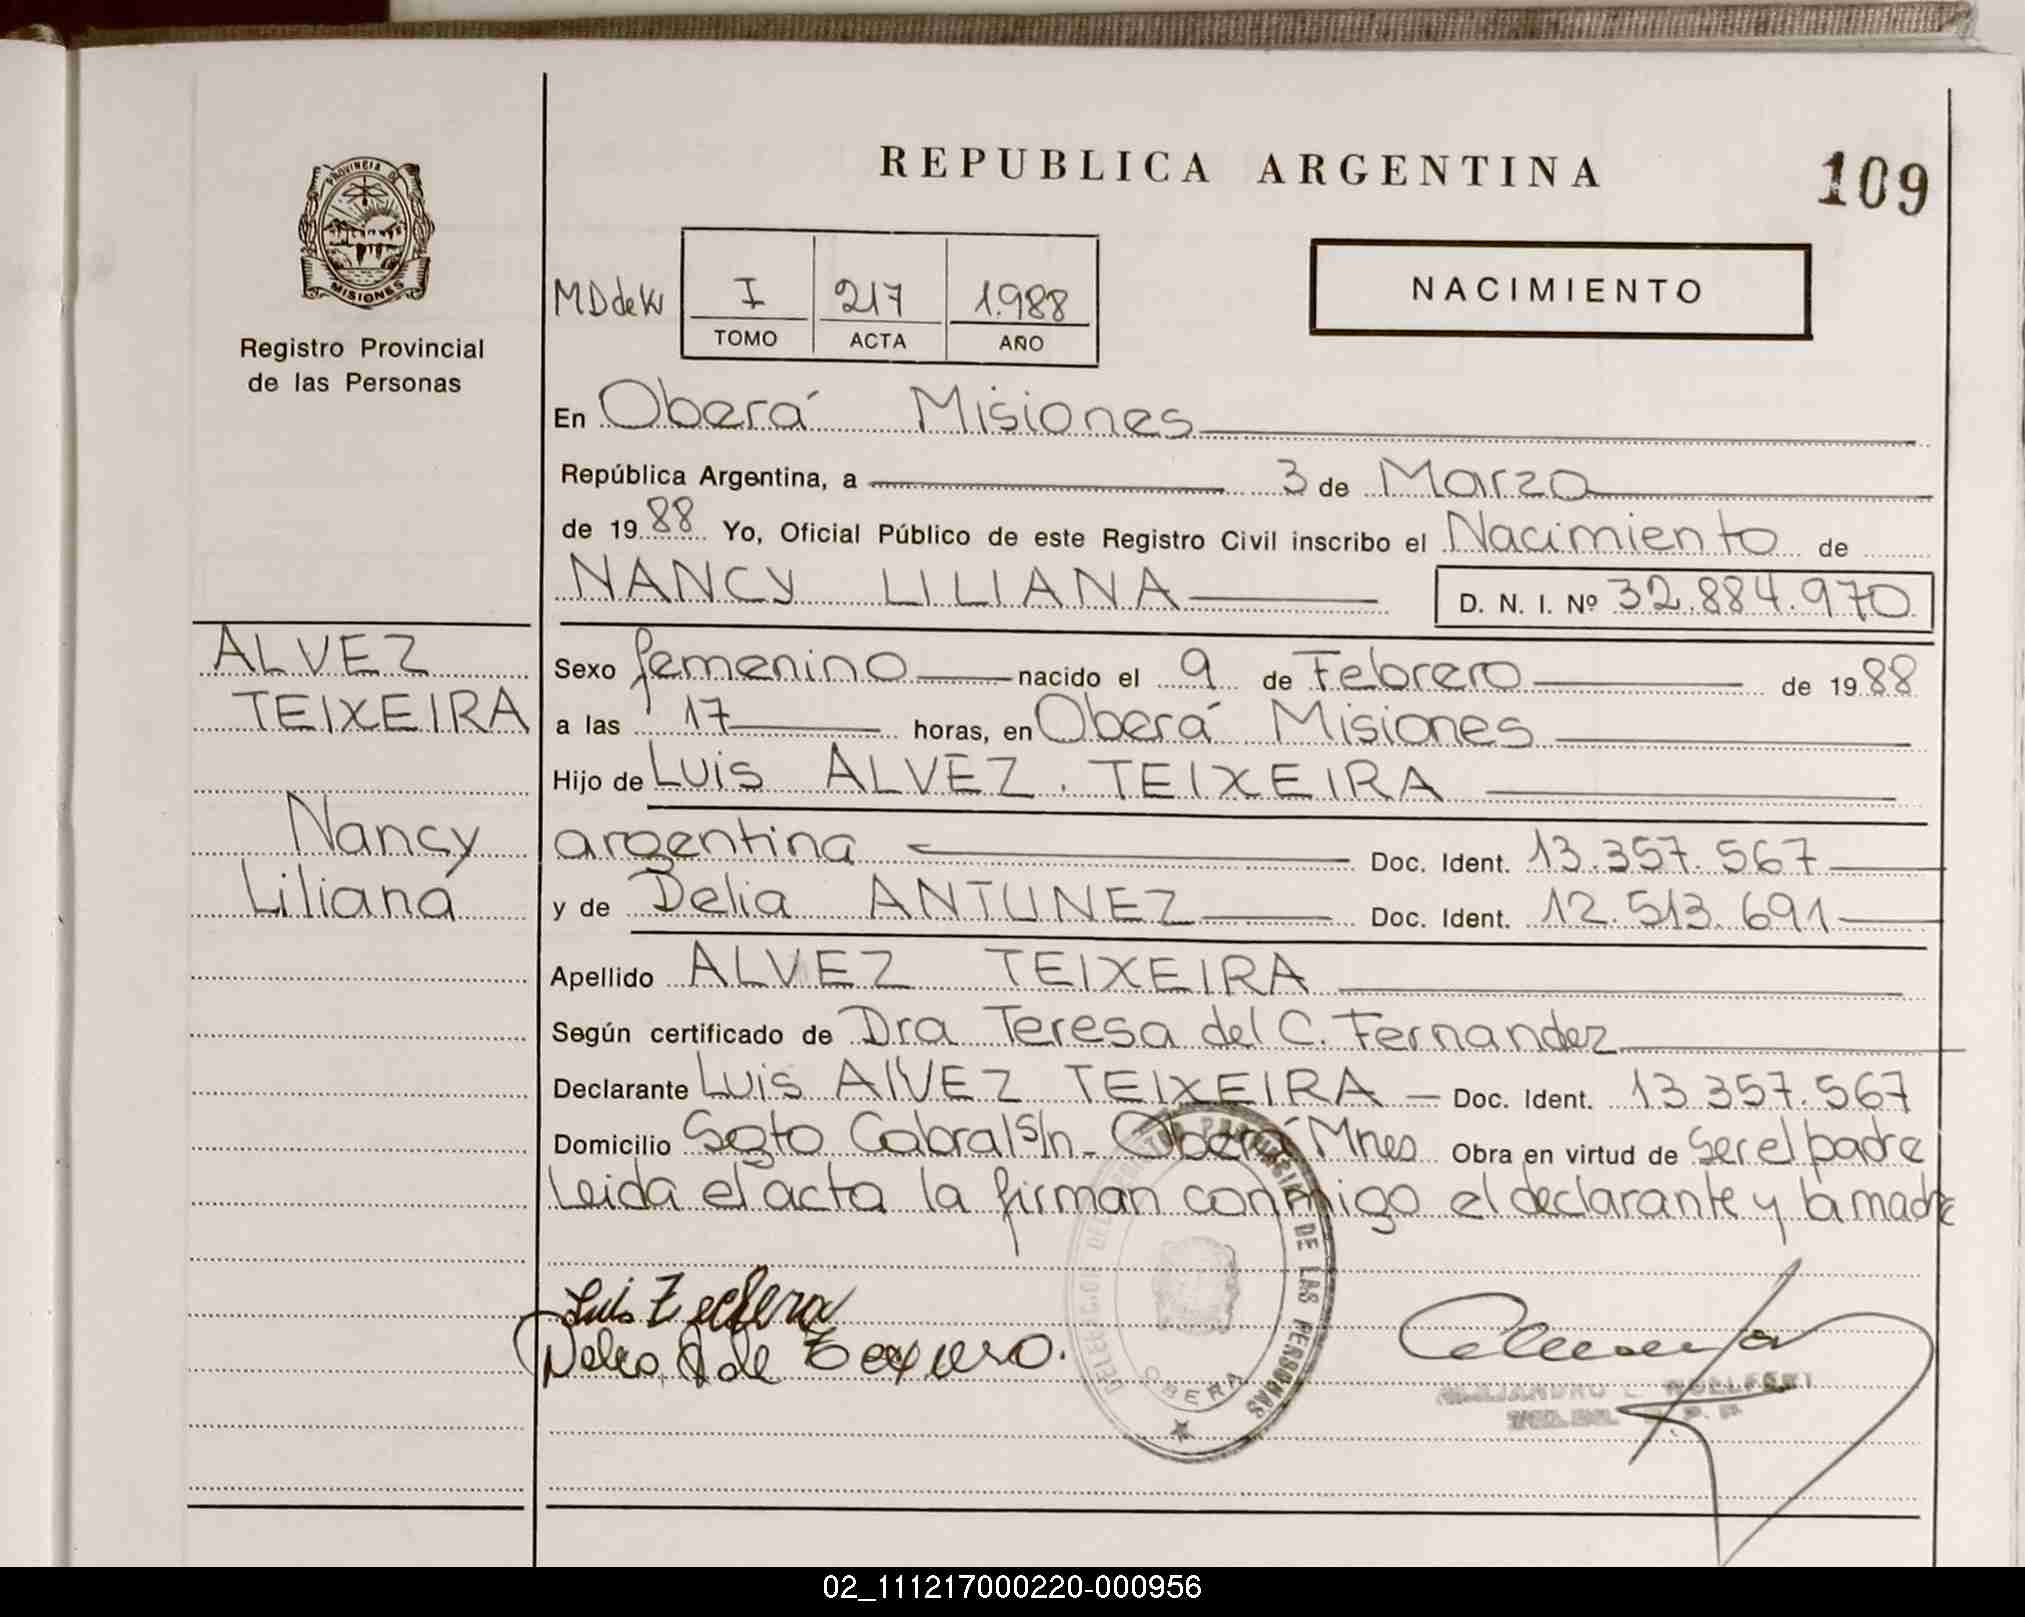 REPUBLICA ARGENTINA
109
PROVINCIA DE
MISIONES
Registro Provincial
de las Personas
MDdeW
I 217 1.988
TOMO ACTA AÑO
NACIMIENTO
En Oberá Misiones
República Argentina, a 3 de Marzo
de 1988 Yo, Oficial Público de este Registro Civil inscribo el Nacimiento de
NANCY LILIANA D. N. I. Nº 32.884.970
ALVEZ
TEIXEIRA
Nancy
Liliana
Sexo femenino nacido el 9 de Febrero de 1988
a las 17 horas, en Oberá Misiones
Hijo de Luis ALVEZ TEIXEIRA
argentina Doc. Ident. 13.357.567
y de Delia ANTUNEZ Doc. Ident. 12.513.691
Apellido ALVEZ TEIXEIRA
Según certificado de Dra Teresa del C. Fernandez
Declarante Luis AlVEZ TEIXEIRA Doc. Ident. 13.357.567
Domicilio Sgto Cabral s/n - Oberá Mnes Obra en virtud de Ser el padre
Leida el acta la firman conmigo el declarante y la madre
Luis
DE LAS PERSONAS
OBERA
02_111217000220-000956